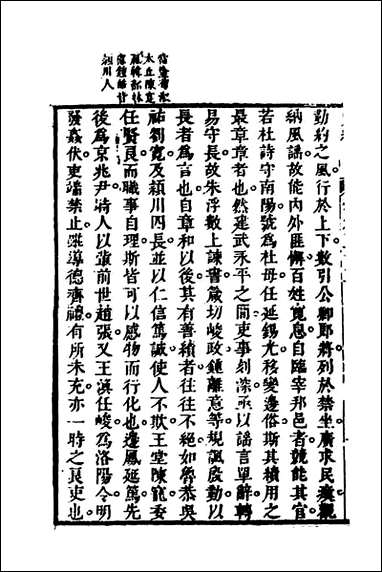 當塗荀淑
太丘陳寔
嬴韓韶林
慮鍾皓皆
潁川人
勤約之風行於上下數引公卿郎將列於禁坐廣求民瘼觀
納風謠故能內外匪懈百姓寬息自臨宰邦邑者競能其官
若杜詩守南陽號為杜母任延錫光移變邊俗斯其績用之
最章章者也然建武永平之間吏事刻深亟以謠言單辭轉
易守長故朱浮數上諫書箴切峻政鍾離意等規諷殷勤以
長者為言也自章和以後其有善績者往往不絕如魯恭吳
祐劉寬及穎川四長並以仁信篤誠使人不欺王堂陳寵委
任賢良而職事自理斯皆可以感物而行化也邊鳳延篤先
後為京兆尹時人以輩前世趙張又王渙任峻為洛陽令明
發姦伏吏端禁止然導德齊禮有所未充亦一時之良吏也